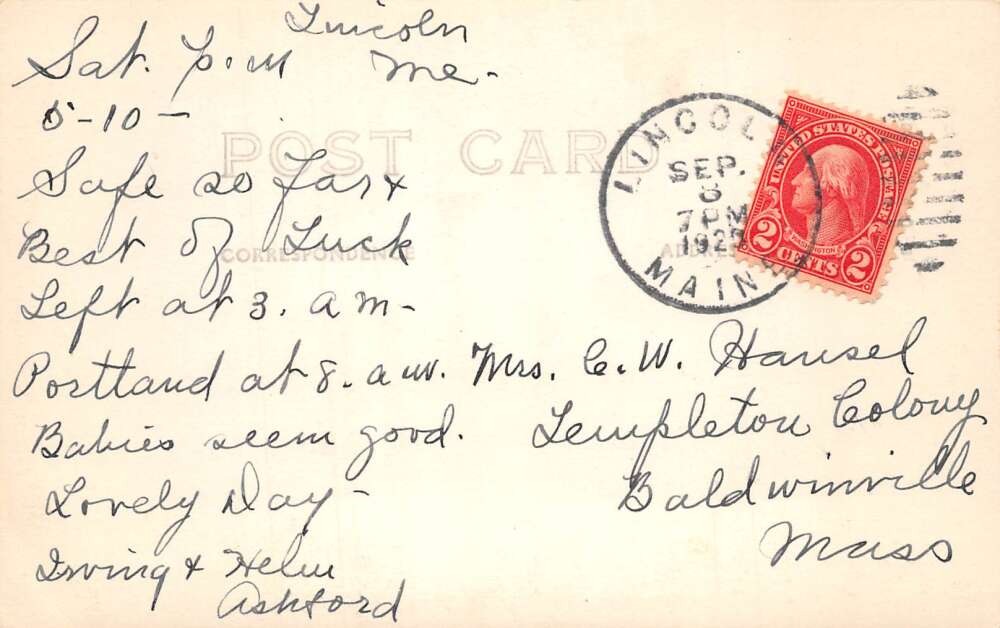 Lincoln
Sat. P.M Me-
5-10-
POST CARD
Safe so far &
Best of Luck
CORRESPONDENCE
Left at 3. a m-
Portland at 8. a m.
Babies seem good.
Lovely Day-
Irving & Helen
Ashford
LINCOLN
SEP.
7 PM
MAINE
UNITED STATES POSTAGE
WASHINGTON
2 CENTS 2
Mrs. C. W. Hansel
Templeton Colony
Baldwinville
Mass